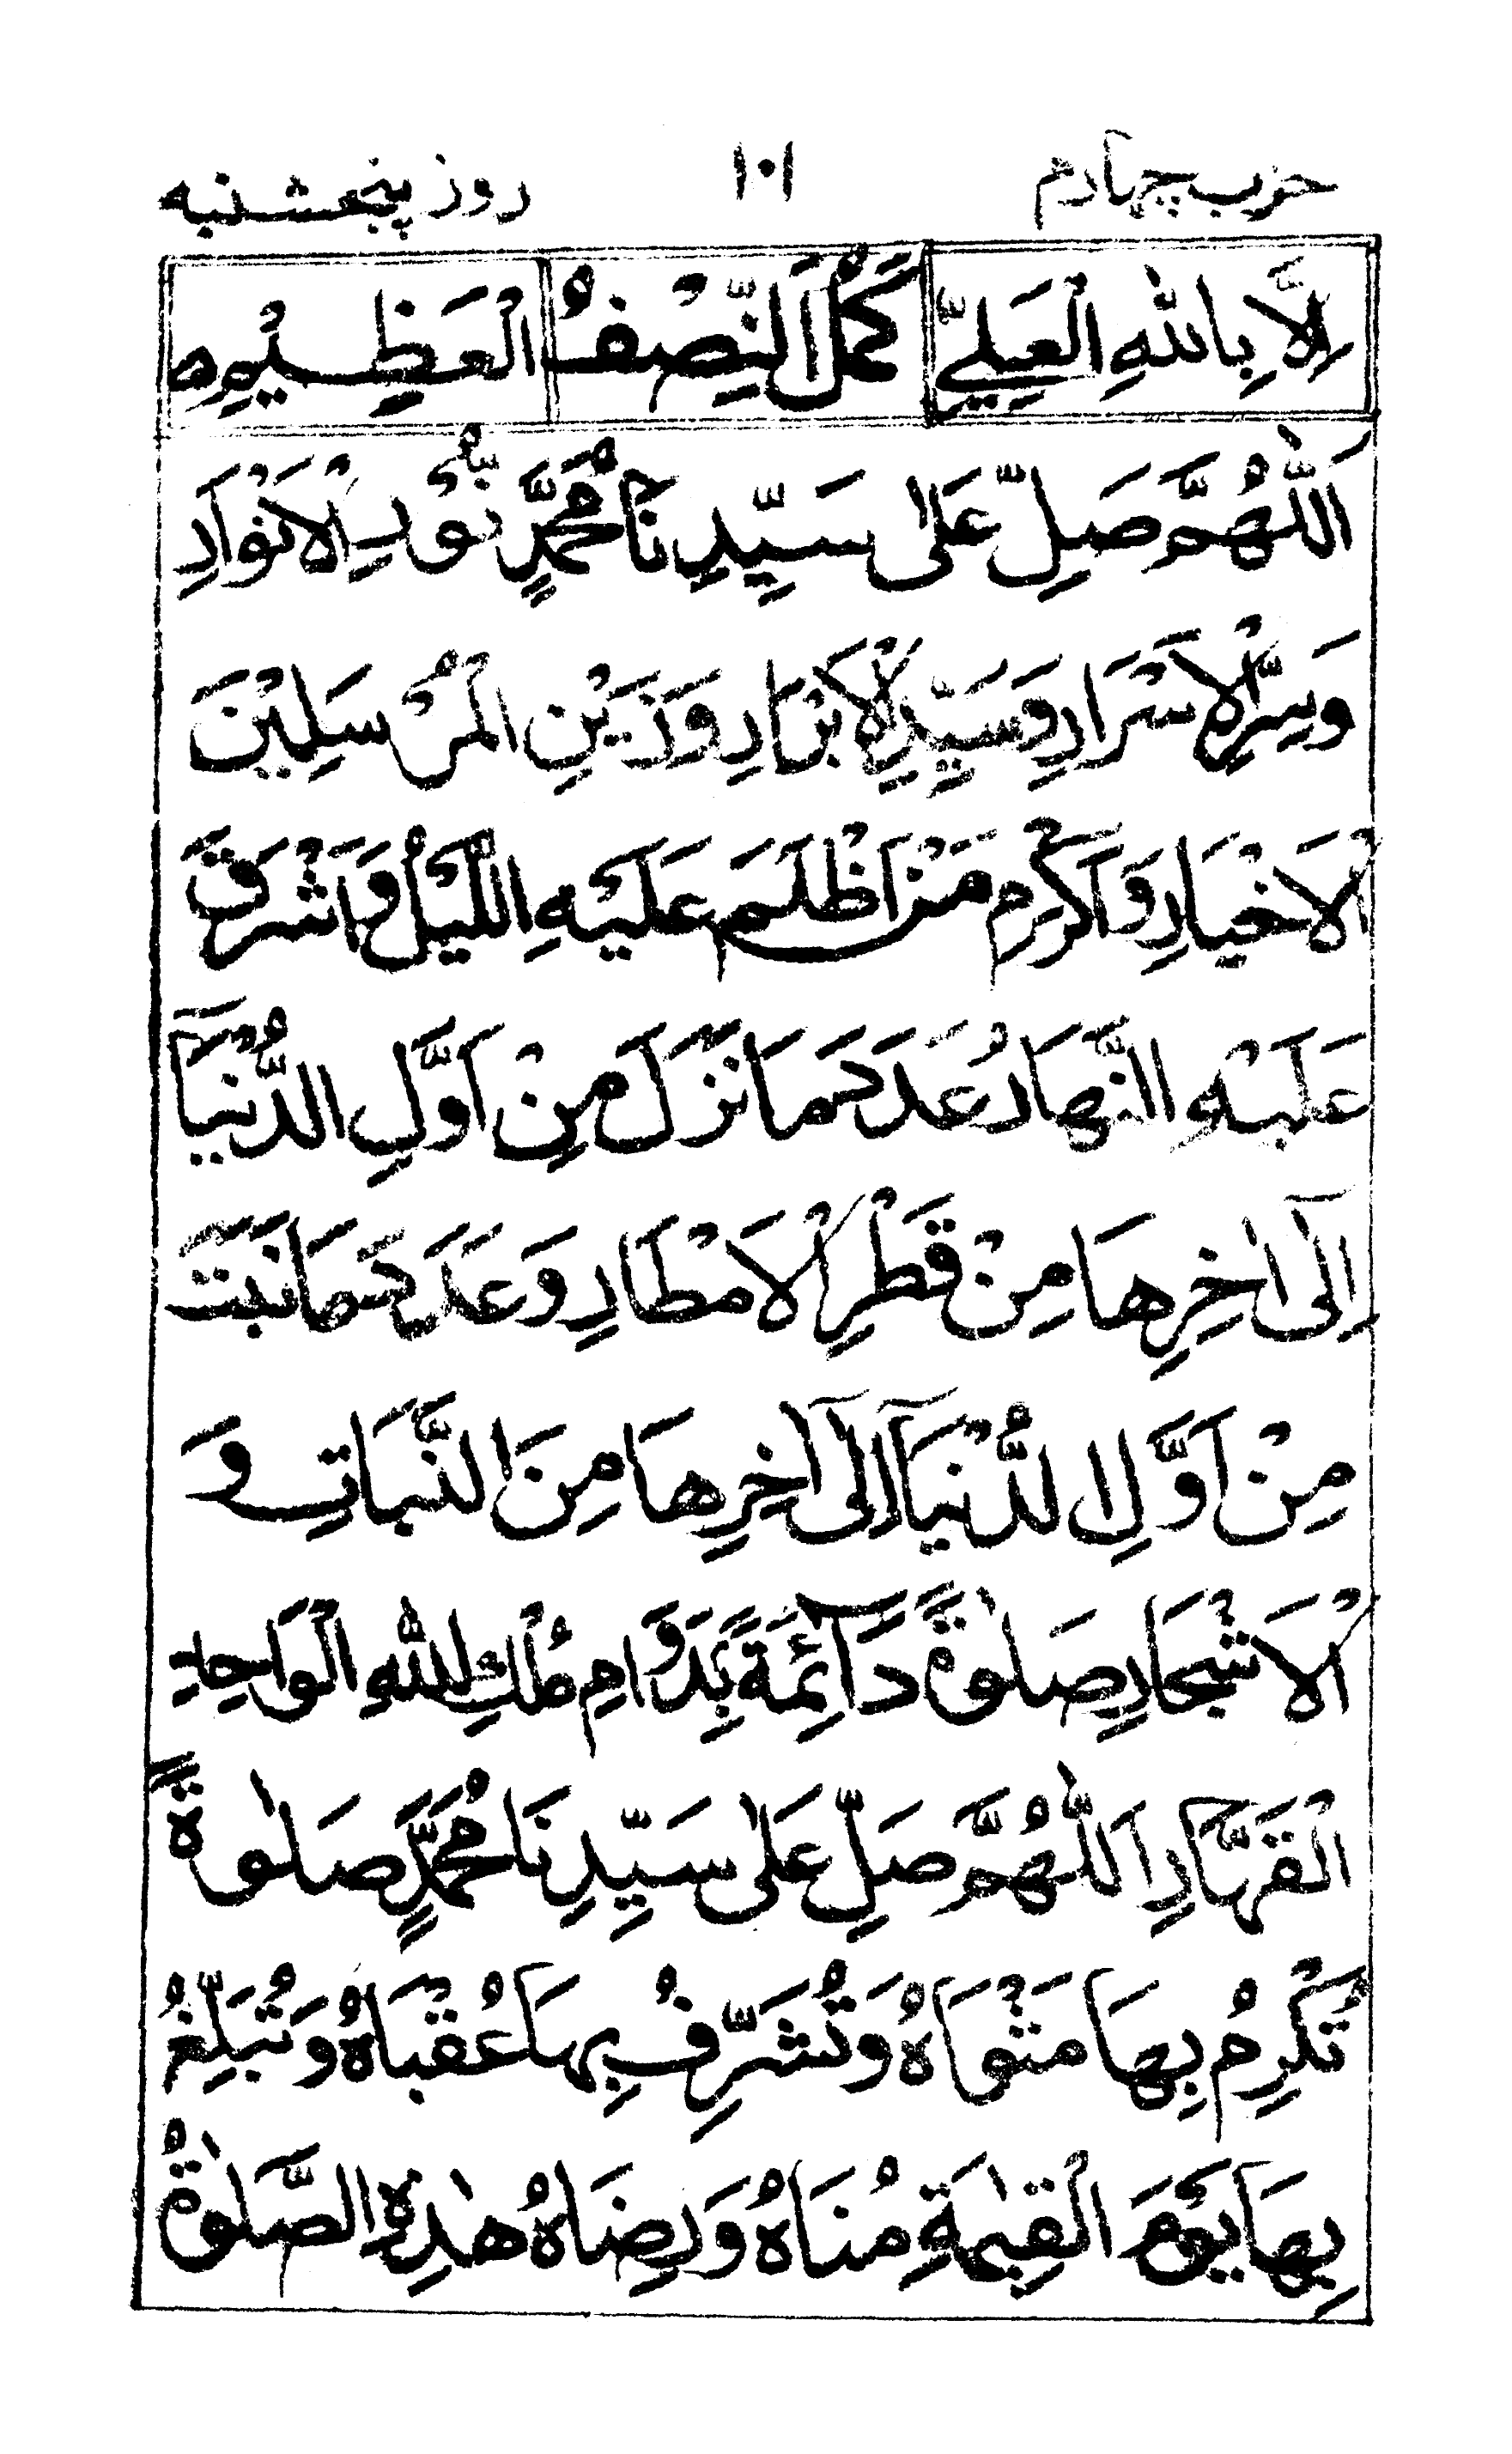 حزب چهارم ١٠١ روز پنجشنبه
اِلَّا بِاللّٰهِ الْعَلِيِّ كَمُلَ النِّصْفُ الْعَظِيْمِ ط
اَللّٰهُمَّ صَلِّ عَلٰى سَيِّدِنَا مُحَمَّدٍ نُّوْرِ الْاَنْوَارِ
وَسِرِّ الْاَسْرَارِ وَسَيِّدِ الْاَبْرَارِ وَزَيْنِ الْمُرْسَلِيْنَ
الْاَخْيَارِ وَاَكْرَمِ مَنْ اَظْلَمَ عَلَيْهِ اللَّيْلُ وَاَشْرَقَ
عَلَيْهِ النَّهَارُ عَدَدَ مَا نَزَلَ مِنْ اَوَّلِ الدُّنْيَآ
اِلٰٓى اٰخِرِهَا مِنْ قَطْرِ الْاَمْطَارِ وَعَدَدَ مَا نَبَتَ
مِنْ اَوَّلِ الدُّنْيَآ اِلٰٓى اٰخِرِهَا مِنَ النَّبَاتِ وَ
الْاَشْجَارِ صَلٰوةً دَآئِمَةً بِدَوَامِ مُلْكِ اللّٰهِ الْوَاحِدِ
الْقَهَّارِ اَللّٰهُمَّ صَلِّ عَلٰى سَيِّدِنَا مُحَمَّدٍ صَلٰوةً
تُكْرِمُ بِهَا مَثْوَاهُ وَتُشَرِّفُ بِهَا عُقْبَاهُ وَتُبَلِّغُ
بِهَا يَوْمَ الْقِيٰمَةِ مُنَاهُ وَرِضَاهُ هٰذِهِ الصَّلٰوةُ